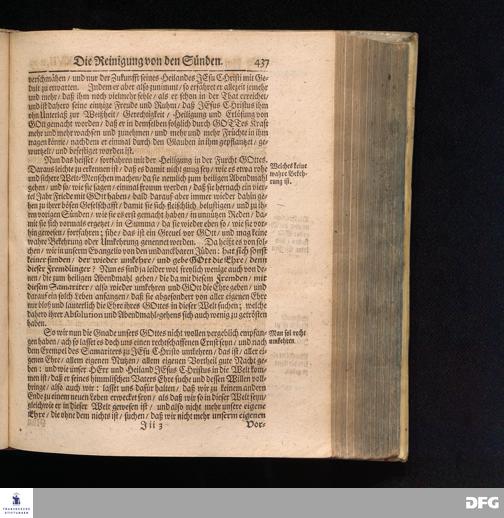 Die Reinigung von den Sünden. 437
verschmähen / und nur der Zukunfft seines Heilandes JEsu CHristi mit Ge-
dult zu erwarten. Indem er aber also zunimmt / so erfähret er allezeit jemehr
und mehr / daß ihm noch vielmehr fehle / als er schon in der That erreichet /
und ist dahero seine eintzige Freude und Ruhm / daß JEsus CHristus ihm
ohn Unterlaß zur Weißheit / Gerechtigkeit / Heiligung und Erlösung von
GOtt gemacht worden / daß er in demselben folglich durch GOTTes Kraft
mehr und mehr wachsen und zunehmen / und mehr und mehr Früchte in ihm
tragen könne / nachdem er einmal durch den Glauben in ihm gepflantzet / ge-
wurtzelt / und befestiget worden ist.
Nun das heisset / fortfahren mit der Heiligung in der Furcht GOttes.
Daraus leicht zu erkennen ist / daß es damit nicht gnug sey / wie es etwa rohe
und sichere Welt-Menschen machen / da sie neulich zum heiligen Abendmahl
gehen / und so / wie sie sagen / einmal fromm werden / daß sie hernach ein vier-
tel Jahr Friede mit GOtt haben / bald darauf aber immer wieder dahin ge-
hen zu ihrer bösen Gesellschafft / damit sie sich fleischlich belustigen / und zu ih-
ren vorigen Sünden / wie sie es erst gemacht haben / in unnützen Reden / da-
mit sie sich vormals ergetzet / in Summa / da sie wieder eben so / wie sie vor-
hin gewesen / fortfahren; sihe / das ist ein Greuel vor GOtt / und mag keine
wahre Bekehrung oder Umkehrung genennet werden. Da heißt es von sol-
chen / wie in unserm Evangelio von den undanckbaren Jüden: hat sich sonst
keiner funden / der wieder umkehre / und gebe GOtt die Ehre / denn
dieser Frembdlinger? Nun es sind ja leider wol freylich wenige auch von de-
nen / die zum heiligen Abendmahl gehen / die da mit diesem Fremden / mit
diesem Samariter / also wieder umkehren und GOtt die Ehre geben / und
darauf ein solch Leben anfangen / daß sie abgesondert von aller eigenen Ehre
nur bloß und lauterlich die Ehre ihres GOttes in dieser Welt suchen; welche
dahero ihrer Absolution und Abendmahl-gehens sich auch wenig zu getrösten
haben.
So wir nun die Gnade unsers GOttes nicht wollen vergeblich empfan-
gen haben / ach so lasset es doch uns einen rechtschaffenen Ernst seyn / und nach
dem Exempel des Samariters zu JEsu CHristo umkehren / das ist / aller ei-
genen Ehre / allem eigenen Nutzen / allem eigenen Vortheil gute Nacht ge-
ben: und wie unser HErr und Heiland JEsus CHristus in die Welt kom-
men ist / daß er seines himmlischen Vaters Ehre suche und dessen Willen voll-
bringe / also auch wir: lasset uns dafür halten / daß wir zu keinem andern
Ende zu einem neuen Leben erwecket seyn / als daß wir so in dieser Welt seyn /
gleichwie er in dieser Welt gewesen ist / und also nicht mehr unsere eigene
Ehre / die ohne dem nichts ist / suchen / daß wir nicht mehr unserm eigenen
Jii 3 Vor-
Welches keine
wahre Bekeh-
rung ist.
Man sol recht
umkehren.
FRANCKESCHE
STIFTUNGEN
DFG